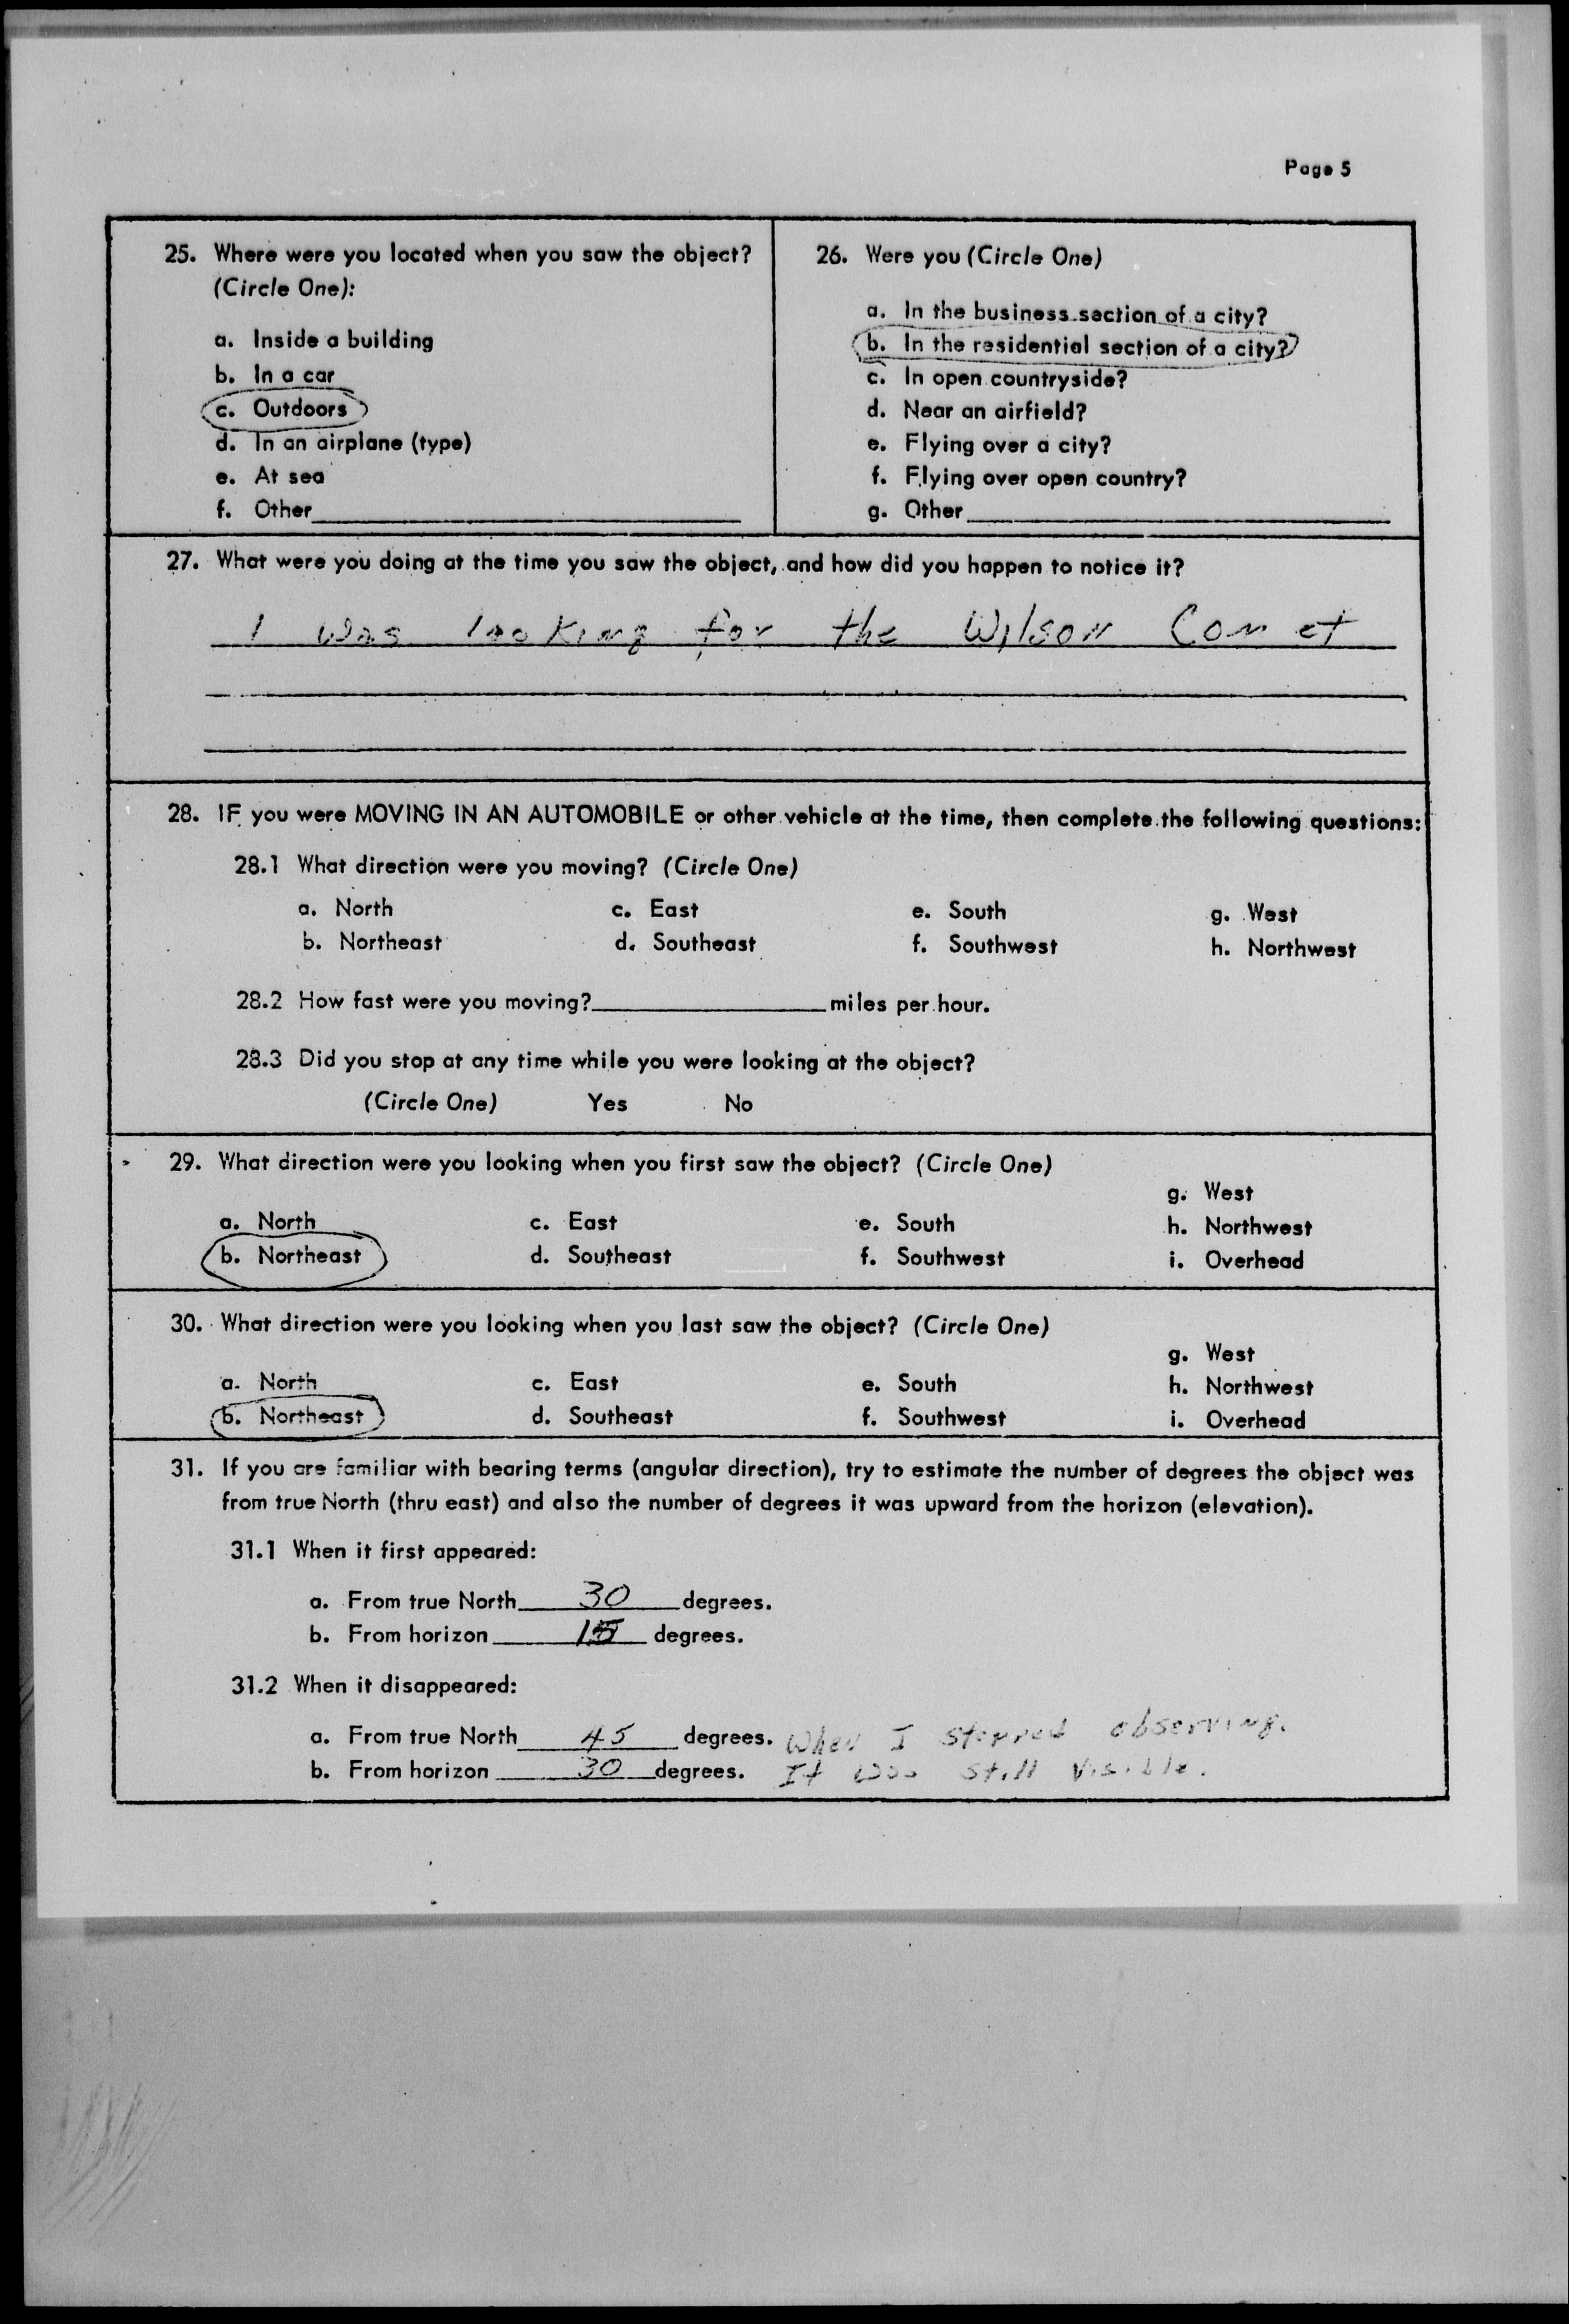 Page 5
25. Where were you located when you saw the object?
(Circle One):
a. Inside a building
b. In a car
c. Outdoors
d. In an airplane (type)
e. At sea
f. Other
26. Were you (Circle One)
a. In the business section of a city?
b. In the residential section of a city?
c. In open countryside?
d. Near an airfield?
e. Flying over a city?
f. Flying over open country?
g. Other
27. What were you doing at the time you saw the object, and how did you happen to notice it?
I was looking for the Wilson Comet
28. IF you were MOVING IN AN AUTOMOBILE or other vehicle at the time, then complete the following questions:
28.1 What direction were you moving? (Circle One)
a. North c. East e. South g. West
b. Northeast d. Southeast f. Southwest h. Northwest
28.2 How fast were you moving? miles per hour.
28.3 Did you stop at any time while you were looking at the object?
(Circle One) Yes No
29. What direction were you looking when you first saw the object? (Circle One)
g. West
a. North c. East e. South h. Northwest
b. Northeast d. Southeast f. Southwest i. Overhead
30. What direction were you looking when you last saw the object? (Circle One)
g. West
a. North c. East e. South h. Northwest
b. Northeast d. Southeast f. Southwest i. Overhead
31. If you are familiar with bearing terms (angular direction), try to estimate the number of degrees the object was
from true North (thru east) and also the number of degrees it was upward from the horizon (elevation).
31.1 When it first appeared:
a. From true North 30 degrees.
b. From horizon 15 degrees.
31.2 When it disappeared:
a. From true North 45 degrees. When I stopped observing.
b. From horizon 30 degrees. It was still visible.